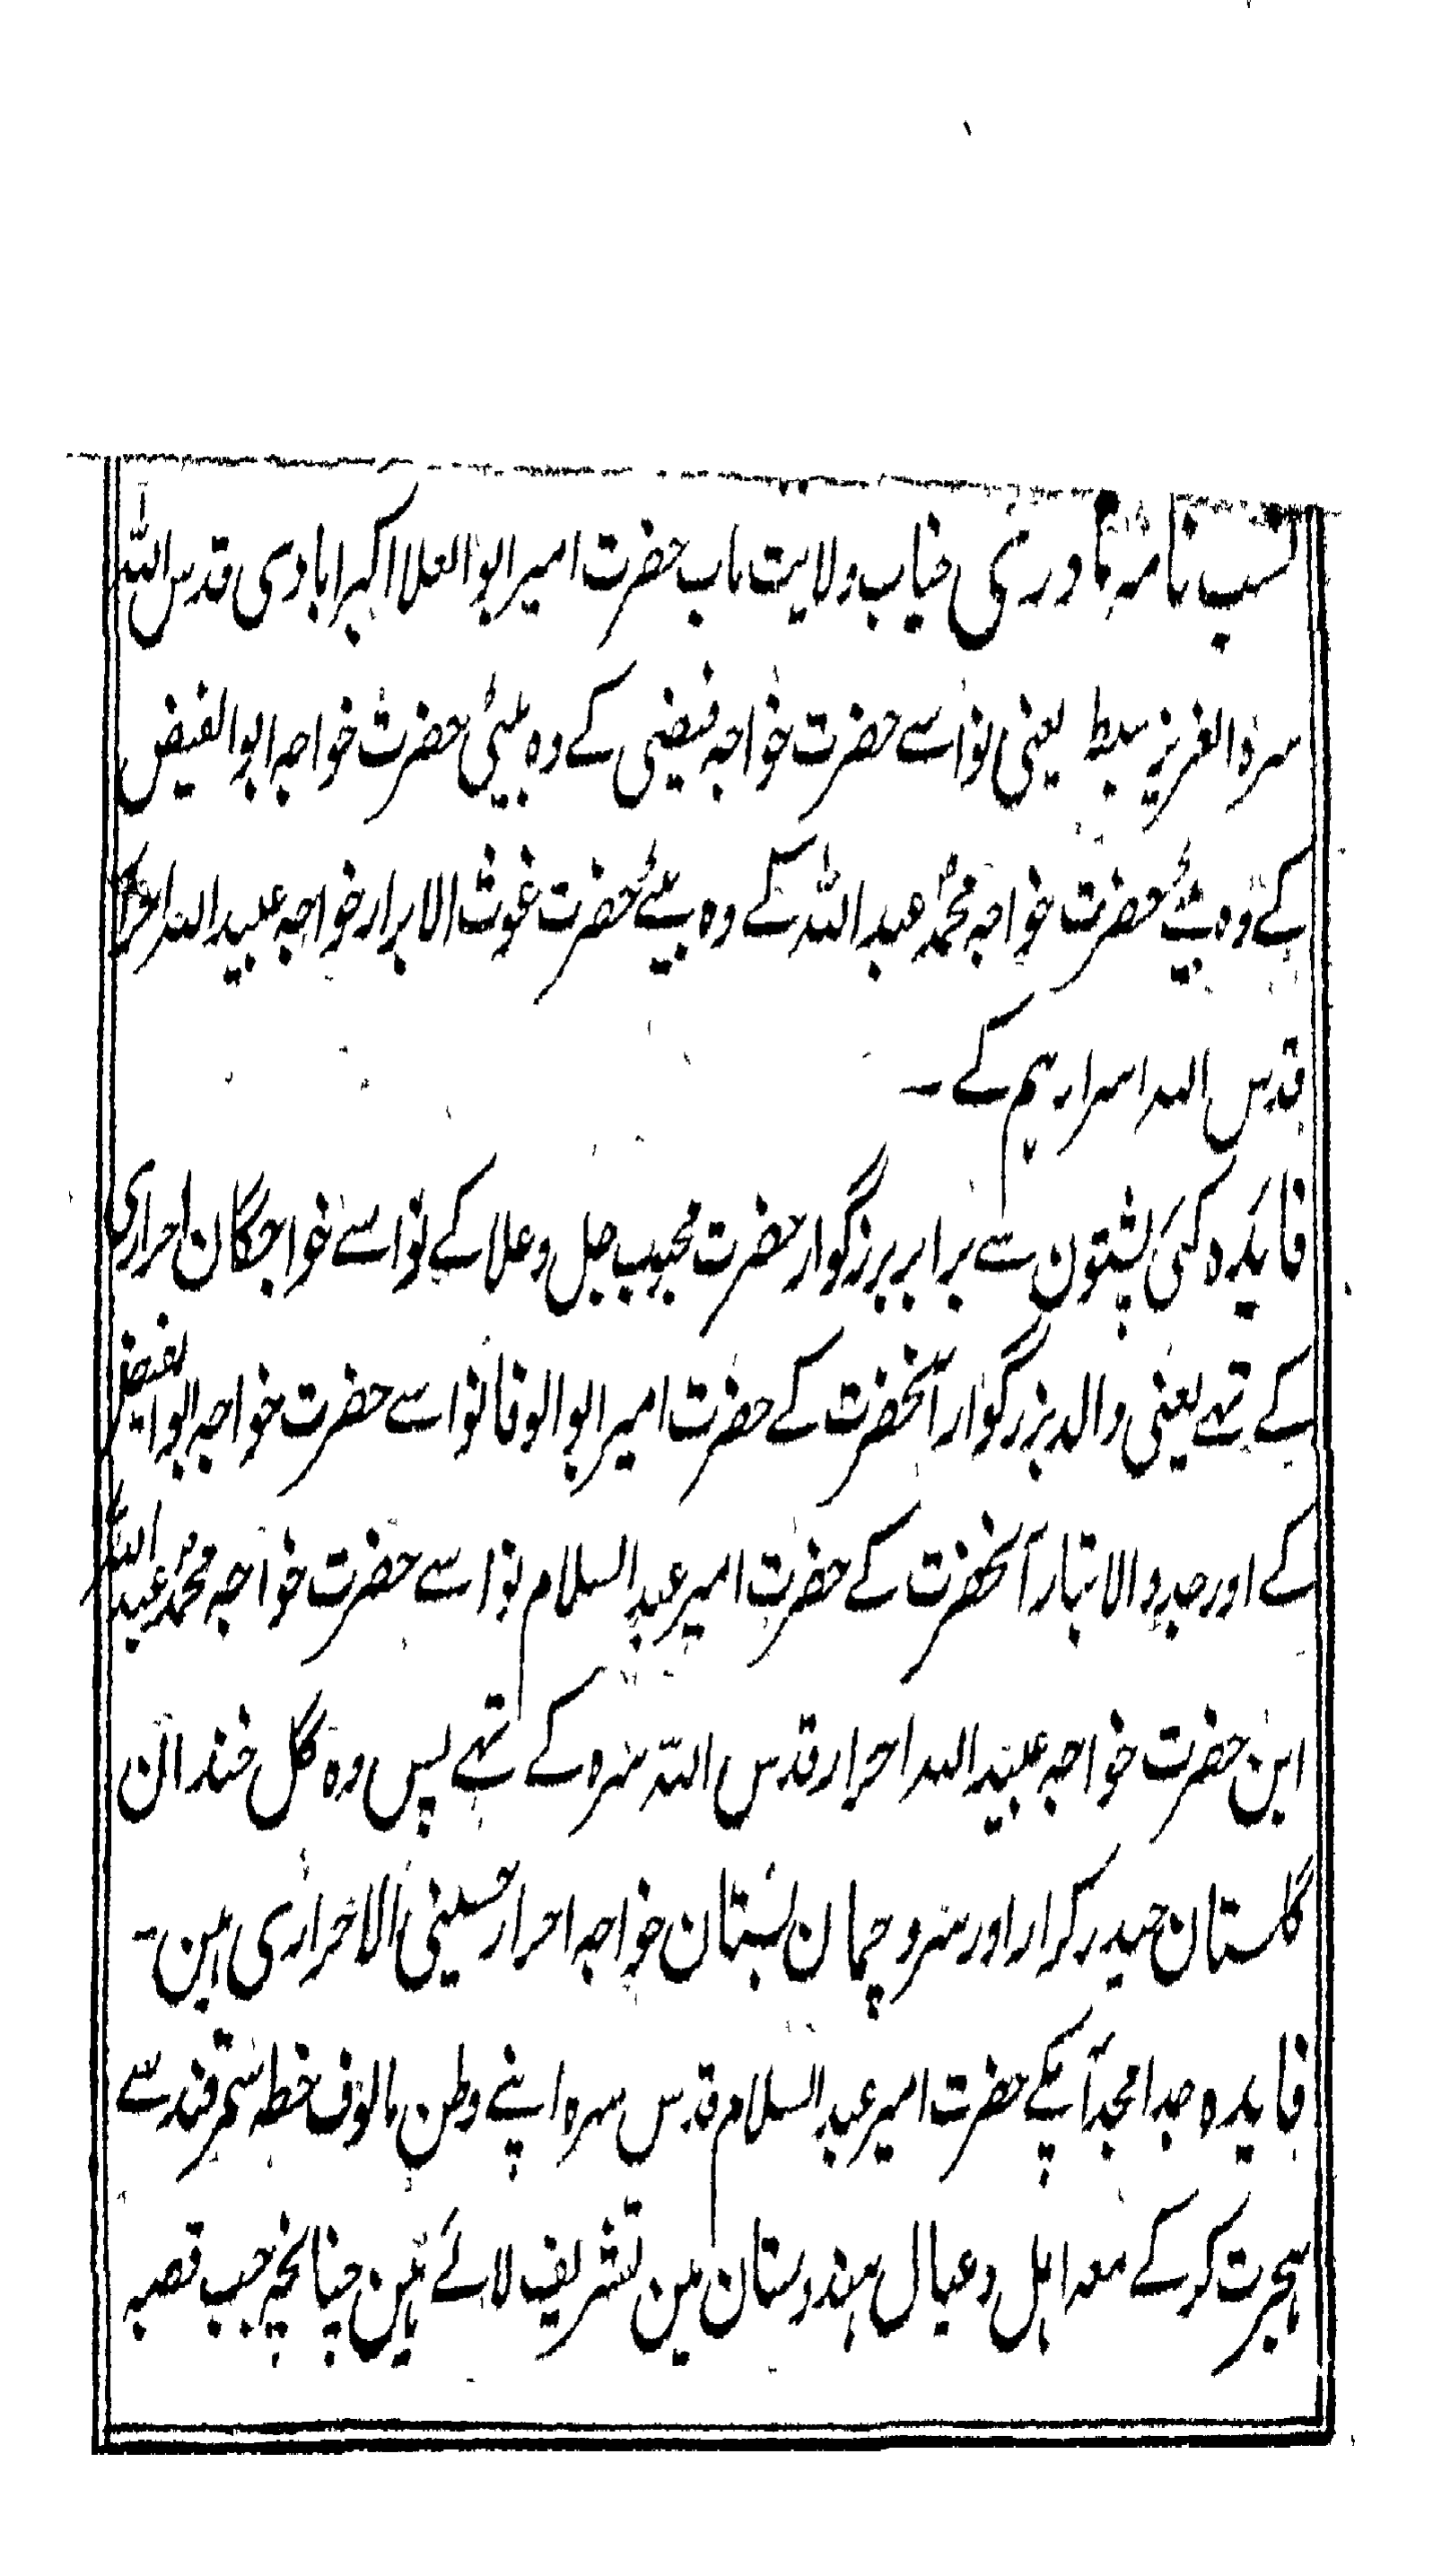 نسب نامہ مادری جناب ولایت ماب حضرت امیر ابوالعلا اکبرابادی قدس اللہ
سرہ العزیز سبط یعنی نواسے حضرت خواجہ فیضی کے وہ بیٹی حضرت خواجہ ابوالفیض
کے وہ بیٹے حضرت خواجہ محمد عبداللہ کے وہ بیٹے حضرت غوث الابرار خواجہ عبیداللہ احرار
قدس اللہ اسرارہم کے ۔
فایدہ کئی پشتون سے برابر بزرگوار حضرت محبوب جل وعلا کے نواسے خواجگان احراری
کے تہے یعنی والد بزرگوار آنحضرت کے حضرت امیر ابوالوفا نواسے حضرت خواجہ ابوالفیض
کے اور جد والاتبار آنحضرت کے حضرت امیر عبدالسلام نواسے حضرت خواجہ محمد عبداللہ
ابن حضرت خواجہ عبیداللہ احرار قدس اللہ سرہ کے تہے پس وہ گل خندان
گلستان حیدر کرار اور سرو چمان بستان خواجہ احرار حسینی الاحراری ہین۔
فایدہ جد امجد آپکے حضرت امیر عبدالسلام قدس سرہ اپنے وطن مالوف خطہ سمرقند سے
ہجرت کر کے معہ اہل و عیال ہندوستان مین تشریف لائے ہین چنانچہ جب قصبہ